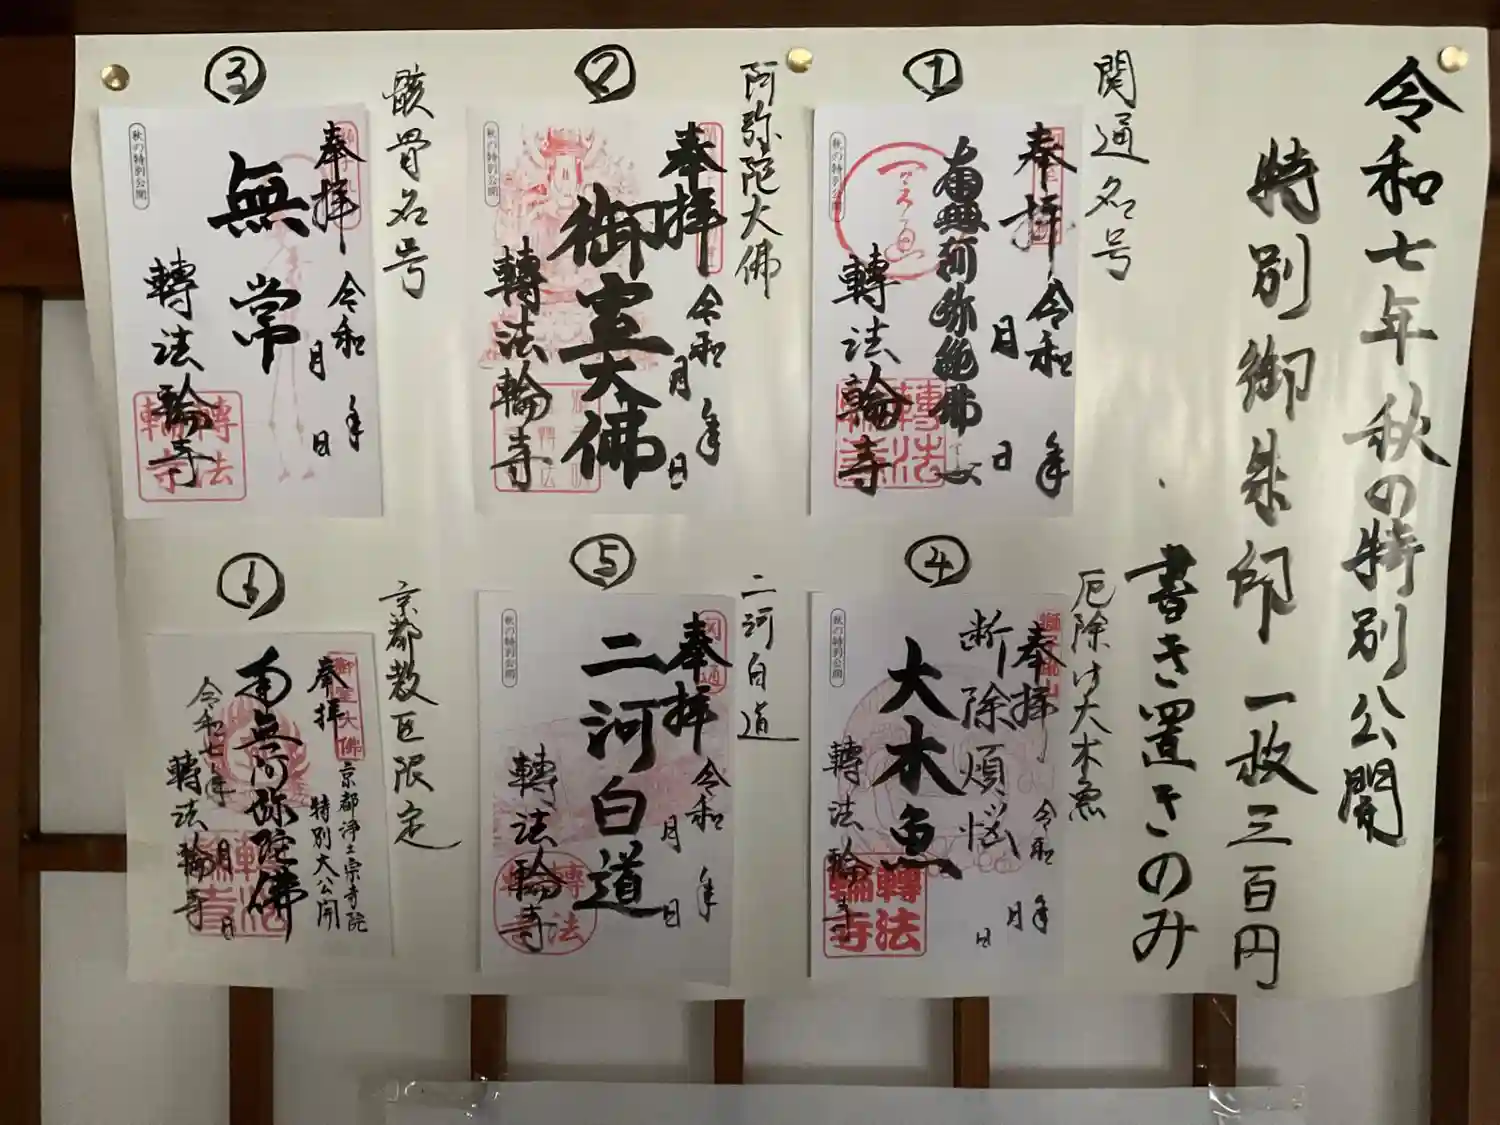 令和七年秋の特別公開
特別御朱印 一枚三百円
書き置きのみ
①
関通名号
奉拝
令和 年
月 日
轉法輪寺
秋の特別公開
②
阿弥陀大佛
奉拝
令和 年
月 日
御室大佛
轉法輪寺
秋の特別公開
③
骸骨名号
奉拝
令和 年
月 日
無常
轉法輪寺
秋の特別公開
④
厄除け大木魚
奉拝
令和 年
月 日
断除煩悩
大木魚
轉法輪寺
秋の特別公開
⑤
二河白道
奉拝
令和 年
月 日
二河白道
轉法輪寺
秋の特別公開
⑥
京都教区限定
奉拝
京都浄土宗寺院
特別大公開
南無阿弥陀佛
令和七年 月 日
轉法輪寺